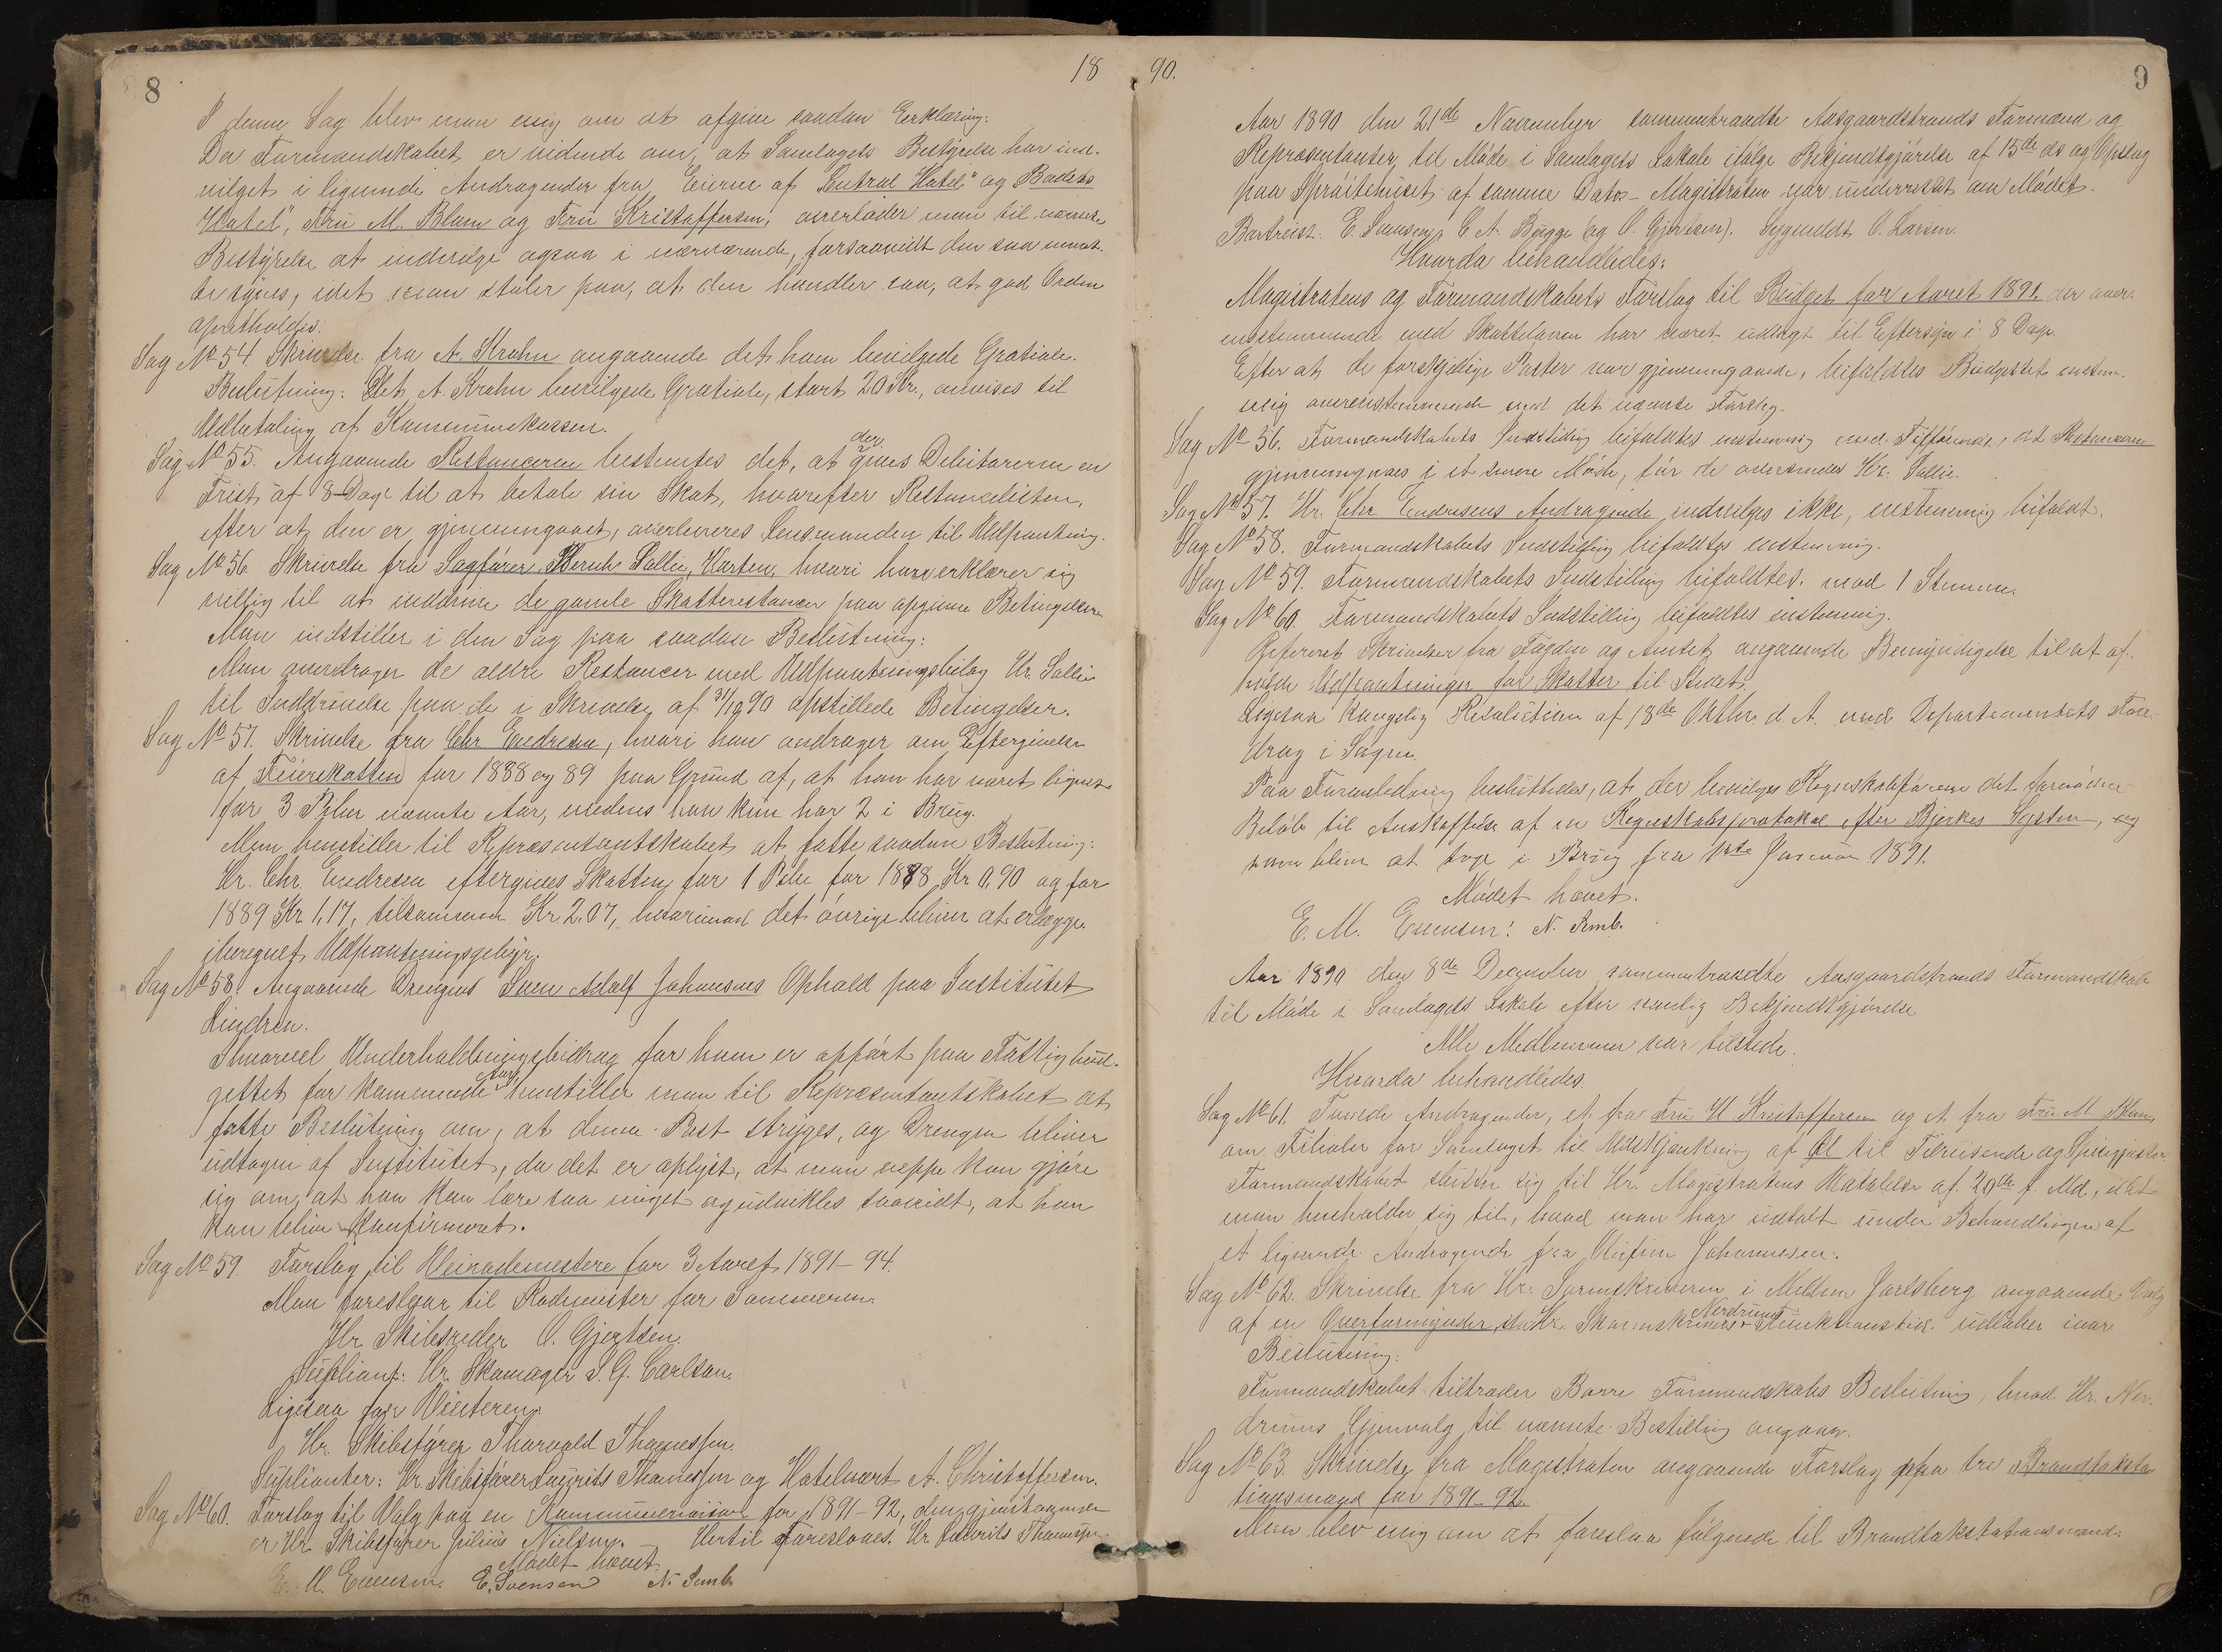 8
18
I denne Sag blev man enig om at afgive saadan Erklæring:
Da Formandskabet er vidende om, at Samlagets Bestyrelse har ind-
vilget i lignende Andragender fra Eierne af "Central Hotel" og Badets
Hotel", Fru M. Blom og Fru Kristoffersen, overlader man til nævnte
Bestyrelse at indvilge ogsaa i nærværende, forsaavidt den saa
synes, idet man stoler paa, at den handler saa, at god Orden
opretholdes.
Sag No 54. Skrivelse fra A. Krohn angaaende det ham bevilgede Gratiale.
Beslutning: Det A. Krohn bevilgede Gratiale, stort 20 Kr., anvises til
Udbetaling af Kommunekassen.
Sag No 55. Angaaende Restancerne bestemtes det, at der gives Debitorerne en
Frist af 8 Dage til at betale sin Skat, hvorefter Restancelisten,
efter at den er gjennemgaaet, overleveres Lensmanden til Udpantning.
Sag No 56. Skrivelse fra Sagfører Bernh. Sollie, Horten, hvori han erklærer sig
villig til at inddrive de gamle Skatterestancer paa opgivne Betingelser.
Man indstiller i den Sag paa saadan Beslutning:
Man overdrager de ældre Restancer med Udpantningsbilag Hr. Sollie
til Inddrivelse paa de i Skrivelse af 31/10 90 opstillede Betingelser.
Sag No 57. Skrivelse fra Chr Endresen, hvori han andrager om Eftergivelse
af Feierskatten for 1888 og 89 paa Grund af, at han har været lignet
for 3 Piber nævnte Aar, medens han kun har 2 i Brug.
Man henstiller til Repræsentantskabet at fatte saadan Beslutning:
Hr. Chr. Endresen eftergives Skatten for 1 Pibe for 1888 Kr 0,90 og for
1889 Kr 1,17, tilsammen Kr. 2,07, hvorimod det øvrige bliver at erlægge
iberegnet Udpantningsgebyr.
Sag No 58. Angaaende Drengen Sven Adolf Johansens Ophold paa Institutet
Lindren.
Ihvorvel Underholdningsbidrag for ham er opført paa Fattigbud-
gettet for kommende Aar, henstiller man til Repræsentantskabet at
fatte Beslutning om, at denne Post stryges, og Drengen bliver
udtagen af Institutet, da det er oplyst, at man neppe kan gjøre
sig om, at han kan lære saa meget og udvikles saavidt, at han
kan blive konfirmeret.
Sag No 59. Forslag til Veirodemestere for 3 Aaret 1891-94.
Man foreslaar til Rodemester for Sommeren.
Hr. Skibsreder O. Gjertsen.
Supliant: Hr. Skomager S. G. Carlson.
Ligesaa for Vinteren.
Hr. Skibsfører Thorvald Thanessen.
Suplianter: Hr. Skibsfører Laurits Thanessen og Hotelvært A. Christoffersen.
Sag No 60. Forslag til Valg paa en Kommunerevisor for 1891-92, den gjenstaaende
er Hr. Skibsfører Julius Nielsen. – Hertil foresloaes. Hr. Laurits Thanessen.
Mødet hævet.
E. M. Evensen. E. Svensen N. Semb.
90.
9
Aar 1890 den 21de November sammentraadte Aasgaardstrands Formænd og
Repræsentanter til Møde i Samlagets Lokale ifølge Bekjendtgjørelse af 15de ds og Opslag
paa Sprøitehuset af samme Dato – Magistraten var underrettet om Mødet.
Bortreist: E. Svensen, C. A. Bugge og O. Gjertsen. Sygmeldt O. Larsen.
Hvorda behandledes:
Magistratens og Formandskabets Forslag til Budget for Aaret 1891, der over-
ensstemmende med Skatteloven har været udlagt til Eftersyn i 8 Dage.
Efter at de forskjellige Poster var gjennemgaaede, bifaldtes Budgettet enstem-
mig overensstemmende med det nævnte Forslag.
Sag No 56. Formandskabets Indstilling bifaldtes enstemmig med Tilføiende, at Restancerne
gjennemgaaes i et senere Møde, før de oversendes Hr. Sollie.
Sag No 57. Hr. Chr Endresens Andragende indvilges ikke, enstemmig bifaldt.
Sag No 58. Formandskabets Indstilling bifaldtes enstemmig.
Sag No 59. Formandskabets Indstilling bifaldtes mod 1 Stemme.
Sag No 60. Formandskabets Indstilling bifaldtes enstemmig.
Refereret Skrivelser fra Fogden og Amtet angaaende Bemyndigelse til at af-
holde Udpantninger for Skatter til Stedet.
Ligesaa Kongelig Resolution af 18de Oktbr. d. A. med Departementets Fore-
drag i Sagen.
Paa Foranledning besluttedes, at der bevilges Regnskabsføreren det fornødne
Beløb til Anskaffelse af en Regnskabsprotokol efter Bjerkes System, og
som bliver at tage i Brug fra 1ste Januar 1891.
Mødet hævet.
E. M. Evensen. N. Semb.
Aar 1890 den 8de December sammentraadte Aasgaardstrands Formandskab
til Møde i Samlagets Lokale efter vanlig Bekjendtgjørelse
Alle Medlemmer var tilstede.
Hvorda behandledes.
Sag No 61. Tvende Andragender, et fra Fru H Kristoffersen og et fra Fru M Blom
om Filialer for Samlaget til Udskjænkning af Øl til Tilreisende og Spisegjester.
Formandskabet slutter sig til Hr. Magistratens Udtalelse af 29de f. Md., idet
man henholder sig til, hvad man har udtalt under Behandlingen af
et lignende Andragende fra Johannesen.
Sag No 62. Skrivelse fra Hr. Sorenskriveren i Mellem Jarlsberg angaaende Valg
af en Overformynder, da Hr. Skarenskrivers Nerdrums Funktionstid udløber iaar
Beslutning:
Formandskabet tiltræder Borre Formandskabs Beslutning, hvad Hr. Ner-
drums Gjenvalg til nævnte Bestilling angaar.
Sag No 63. Skrivelse fra Magistraten angaaende Forslag paa tre Brandtaksta-
tionsmænd for 1891-92.
Man blev enig om at foreslaa følgende til Brandtakstationsmænd: